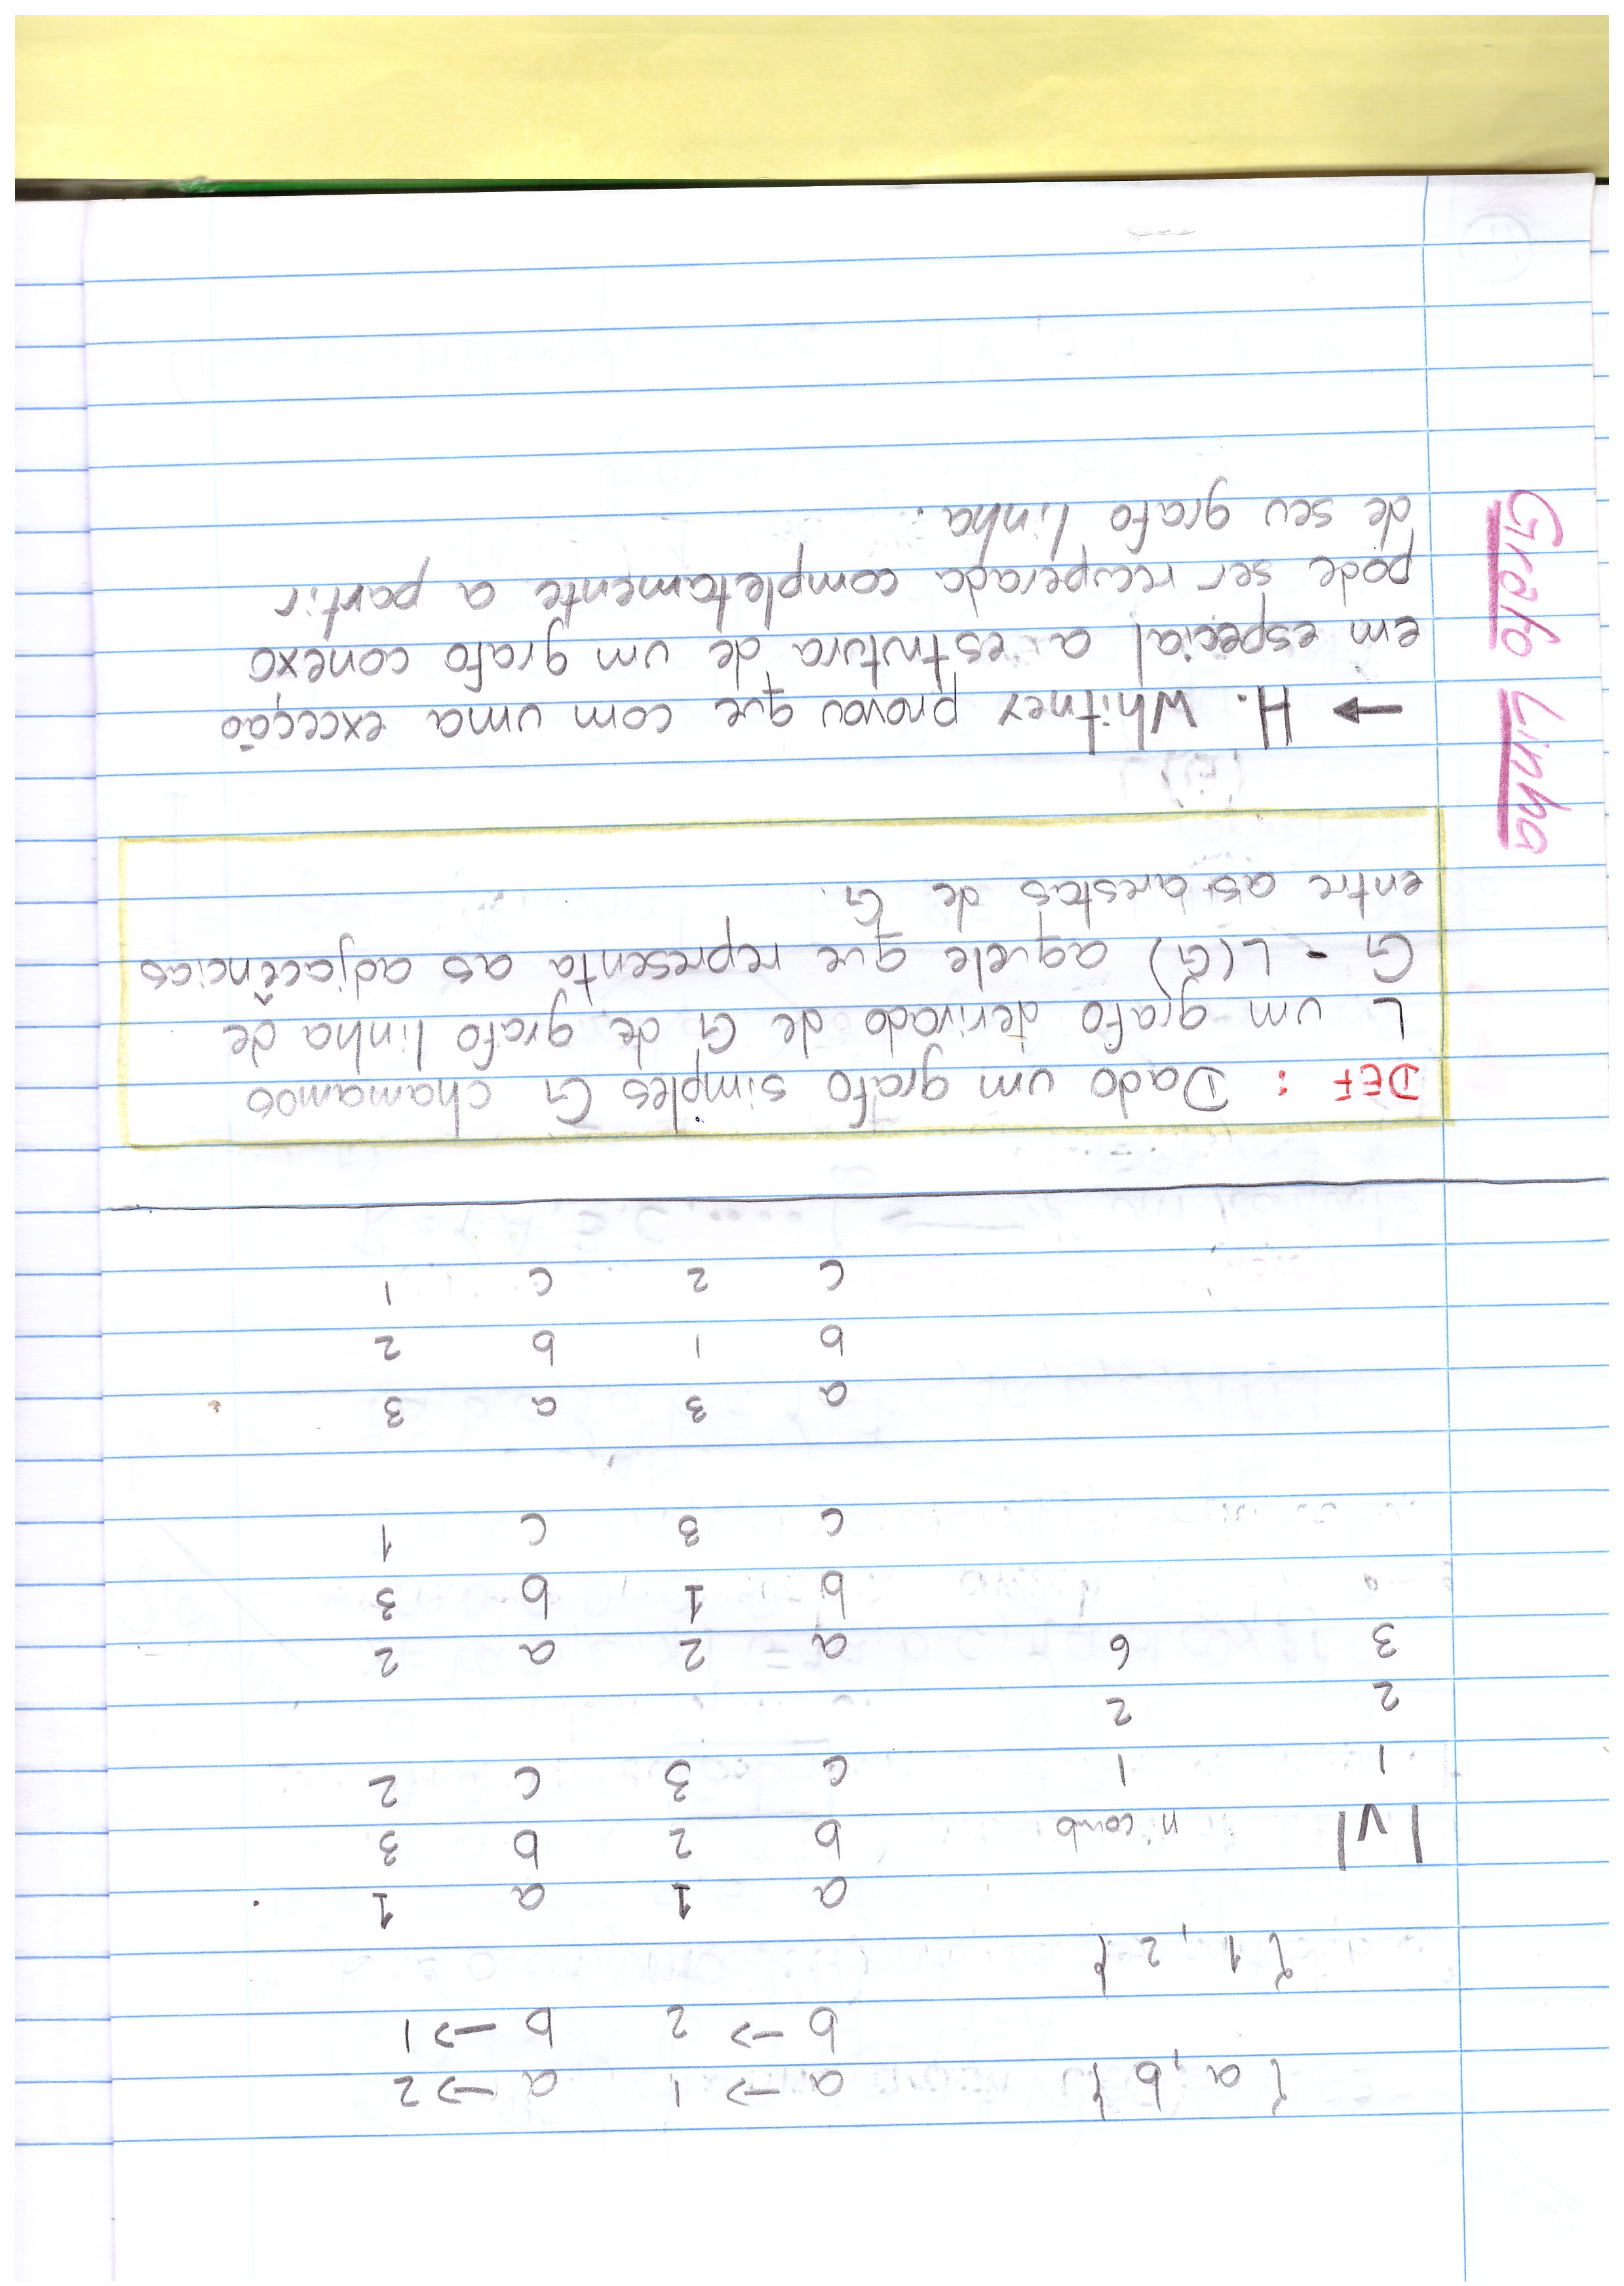 { a , b } a → 1 a → 2
b → 2 b → 1
{ 1 , 2 }
a 1 a 1
|v| n° comb b 2 b 3
1 1 c 3 c 2
2 2
3 6 a 2 a 2
b 1 b 3
c 3 c 1
a 3 a 3
b 1 b 2
c 2 c 1
DEF : Dado um grafo simples G chamamos
L um grafo derivado de G de grafo linha de
G - L(G) aquele que representa as adjacências
entre as arestas de G.
Grafo Linha
→ H. Whitney provou que com uma exceção
em especial a estrutura de um grafo conexo
pode ser recuperada completamente a partir
de seu grafo linha.